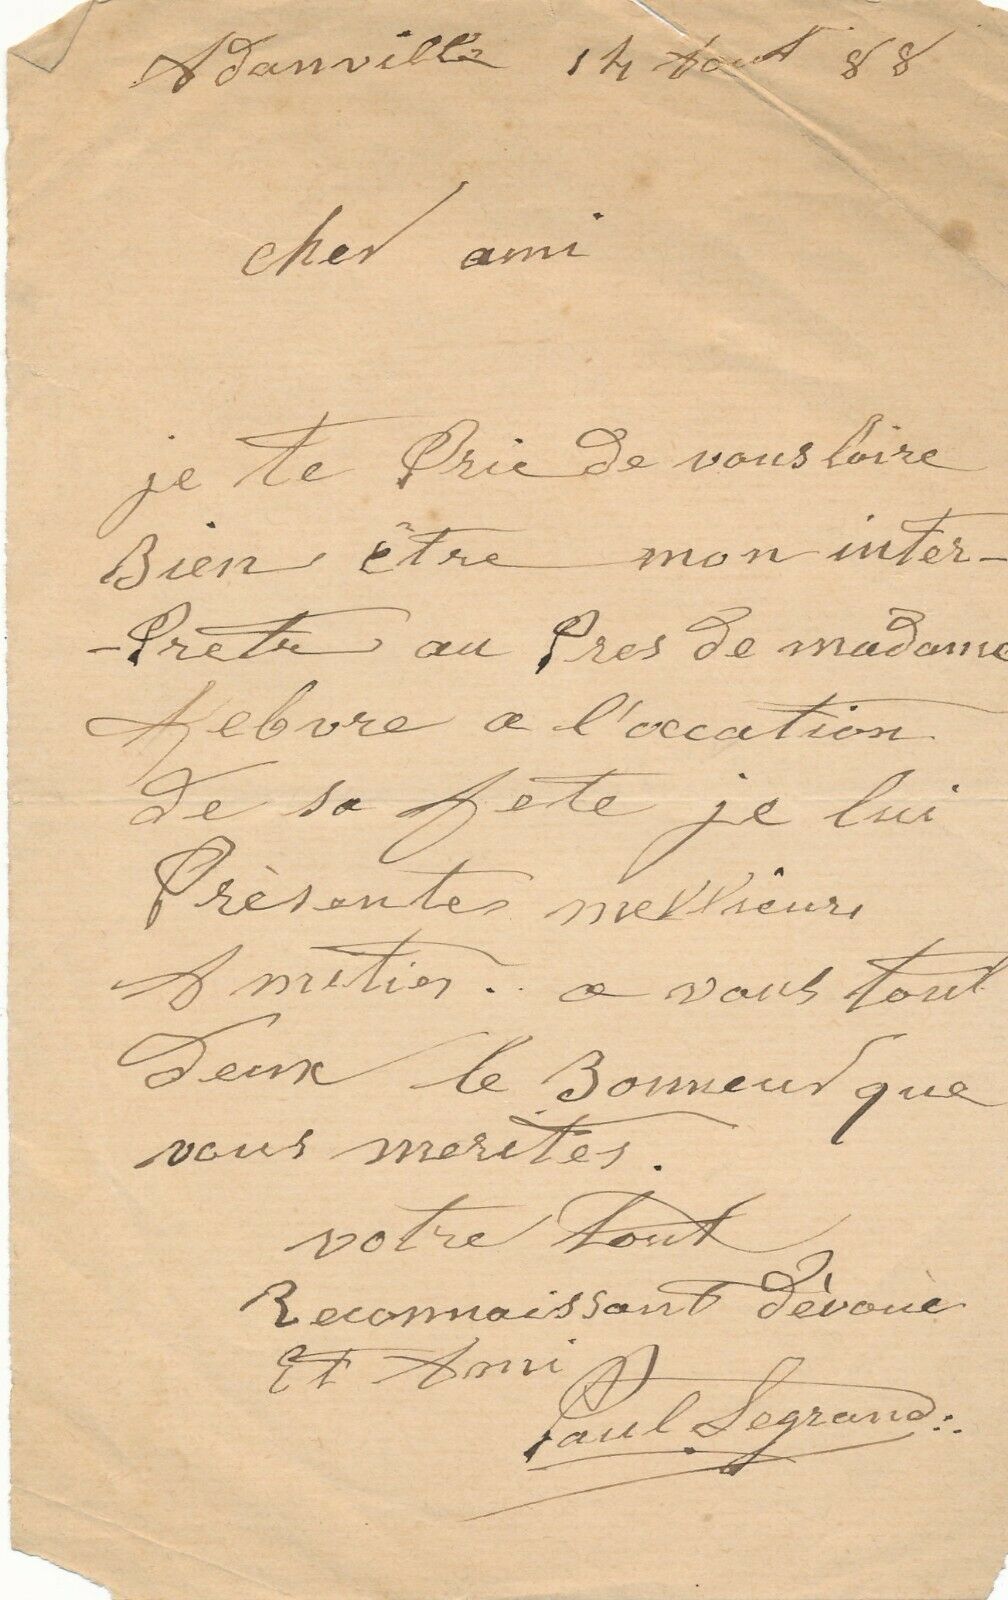 Adanville 14 Aout 88
cher ami
je te Prie de vousloire
Bien être mon inter-
-Pretr au Pres de madame
Febvre a l'occation
de sa fete je lui
Présentes meillieurs
Amitiés.. a vous tout
deux le Bonneur que
vous merites.
votre tout
Reconnaissant dévoué
Et Ami
Paul Legrand